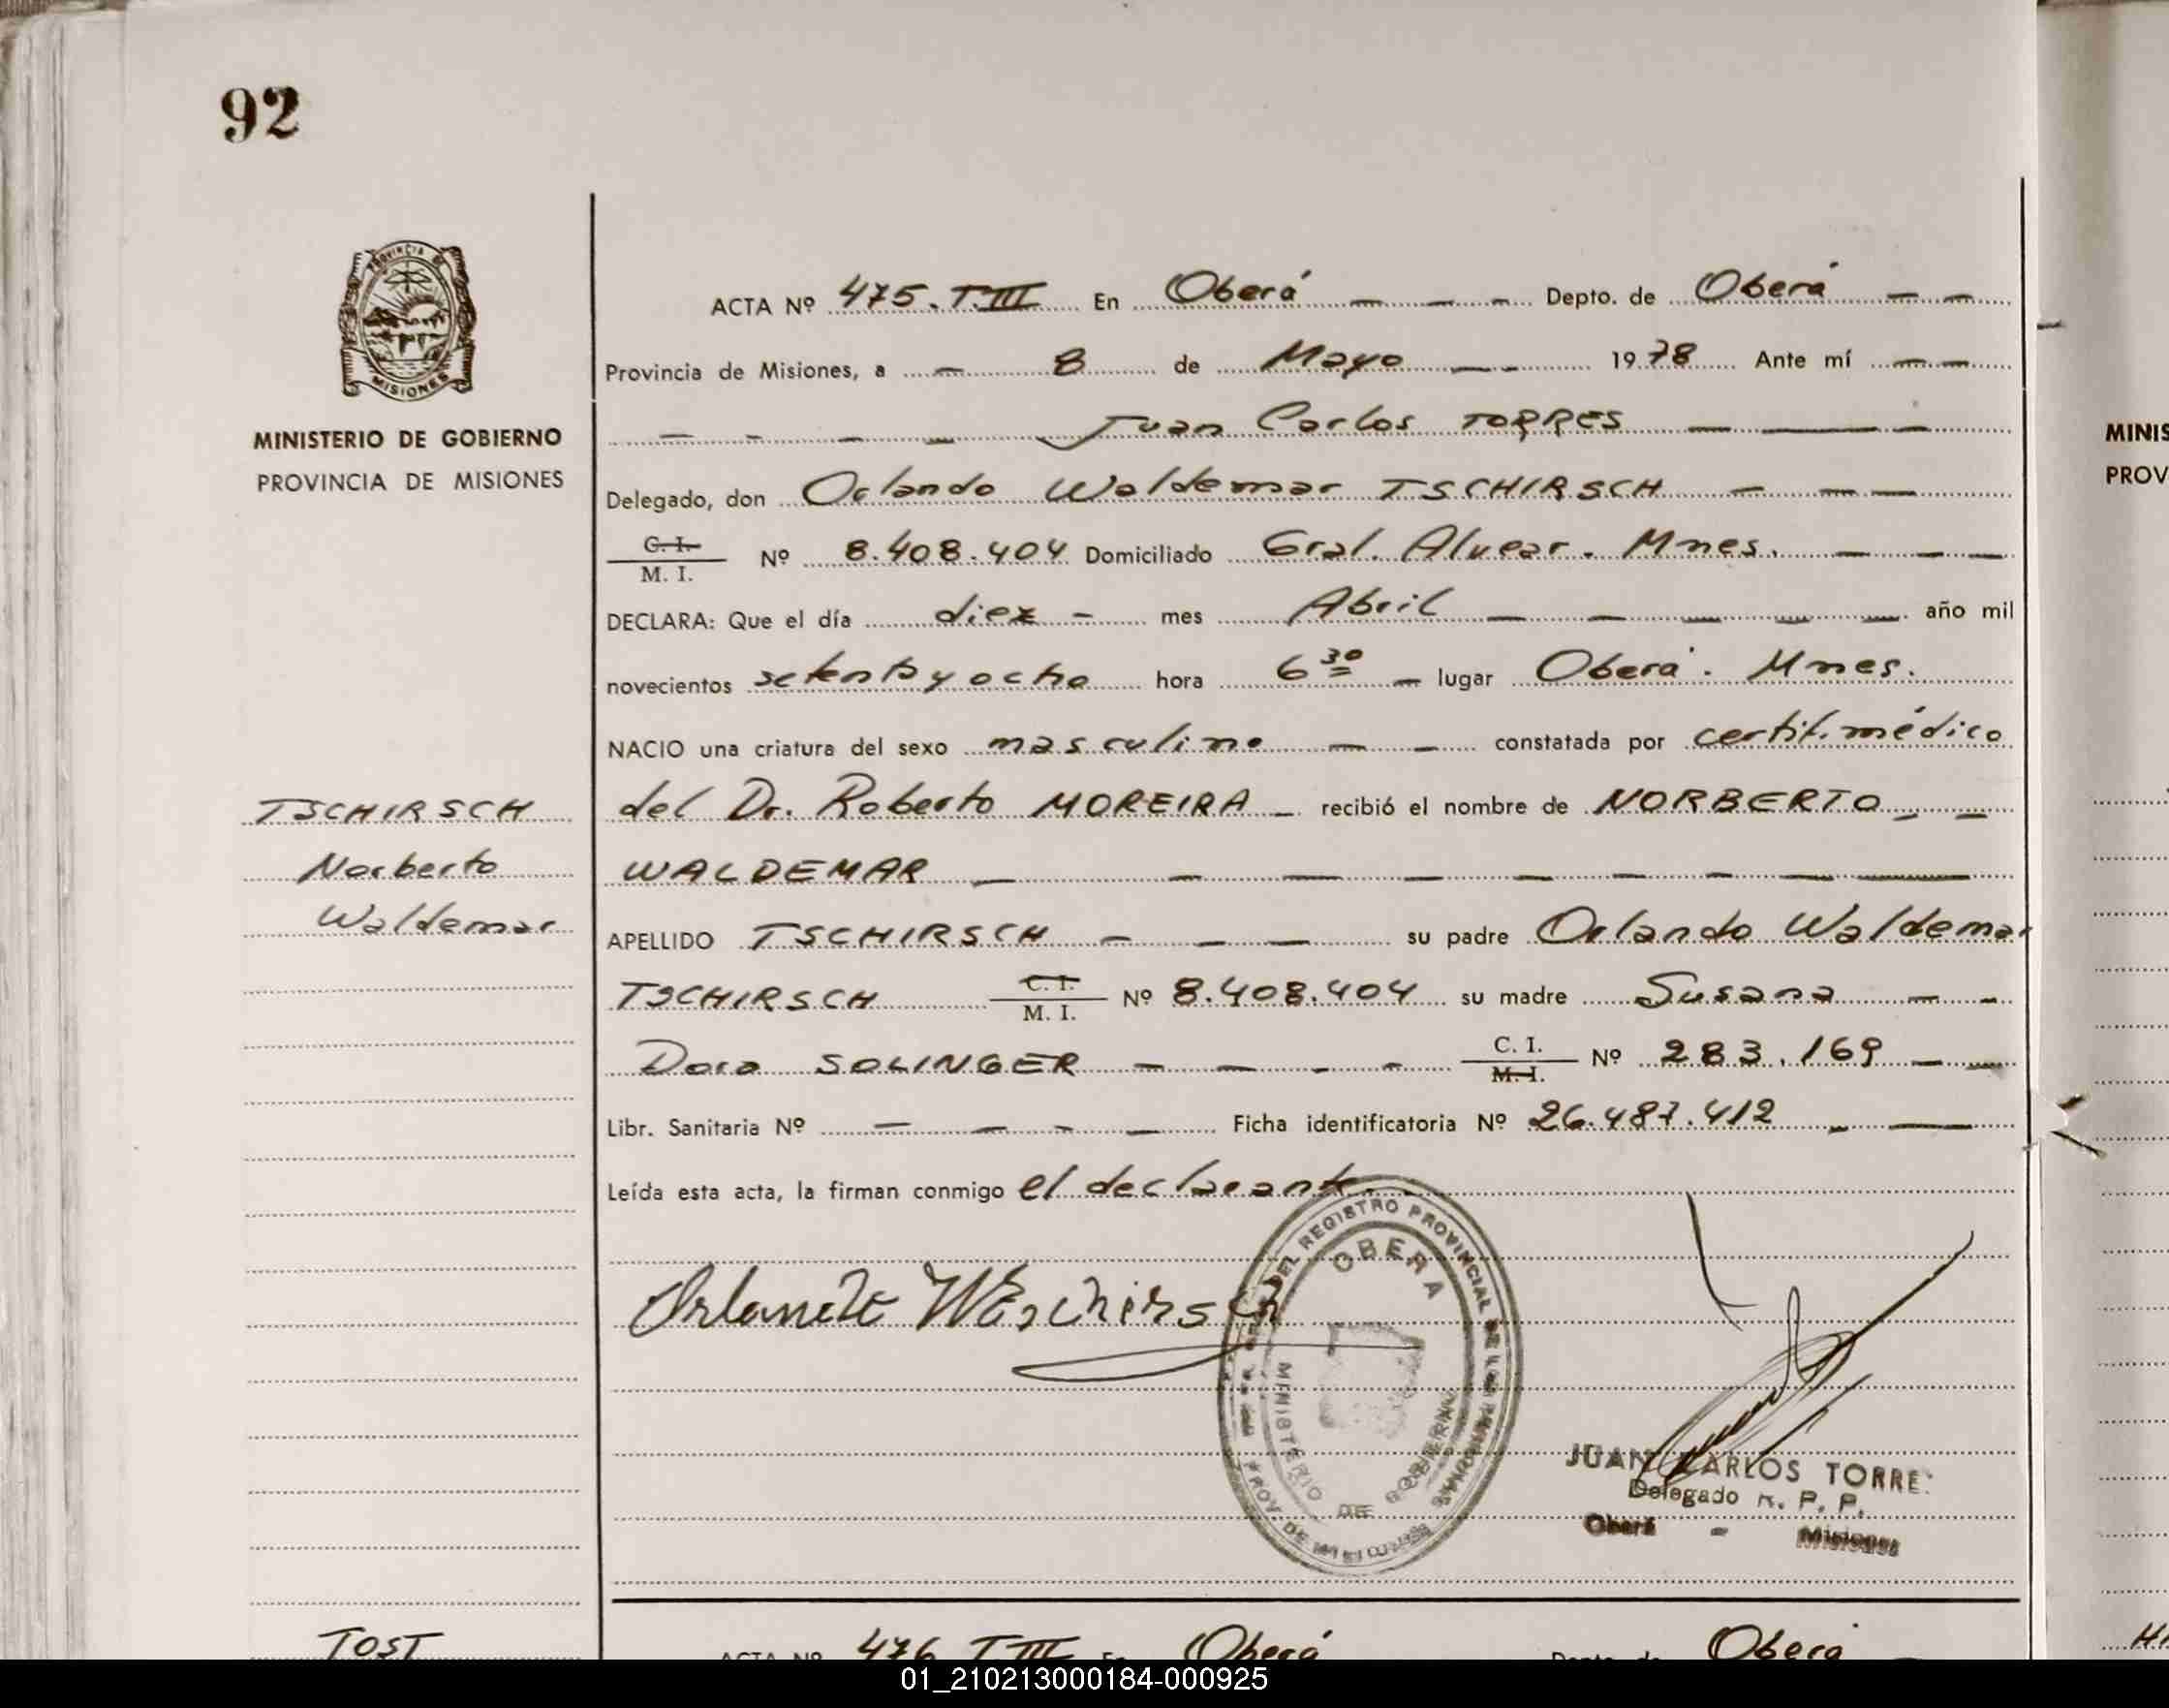 92
PROVINCIA DE
MISIONES
MINISTERIO DE GOBIERNO
PROVINCIA DE MISIONES
TSCHIRSCH
Norberto
Waldemar
ACTA Nº 475. T.III En Oberá — — — Depto. de Oberá — —
Provincia de Misiones, a — 8 de Mayo — - 1978 Ante mí — —
— - — — Juan Carlos TORRES — — —
Delegado, don Orlando Waldemar TSCHIRSCH — — —
C. I.
M. I. Nº 8.408.404 Domiciliado Gral. Alvear. Mnes. — — —
DECLARA: Que el día diez - mes Abril — — — — — año mil
novecientos setenta y ocho hora 6 30 — lugar Oberá. Mnes.
NACIO una criatura del sexo masculino — — constatada por certif. médico
del Dr. Roberto MOREIRA — recibió el nombre de NORBERTO — —
WALDEMAR — — — — — — — — —
APELLIDO TSCHIRSCH — — — su padre Orlando Waldemar
TSCHIRSCH C. I.
M. I. Nº 8.408.404 su madre Susana — -
Dora SOLINGER — — - - C. I.
M. I. Nº 283.169 — —
Libr. Sanitaria Nº — — - — Ficha identificatoria Nº 26.487.412 - —
Leída esta acta, la firman conmigo el declarante.
DEL REGISTRO PROVINCIAL DE LAS PERSONAS
OBERA
MINISTERIO DE GOBIERNO
PROV. DE MISIONES
JUAN CARLOS TORRE
Delegado R. P. P.
Oberá - Misiones
TOST
ACTA Nº 476 T.III En Oberá Depto. de Oberá —
MINIS
PROV
01_210213000184-000925